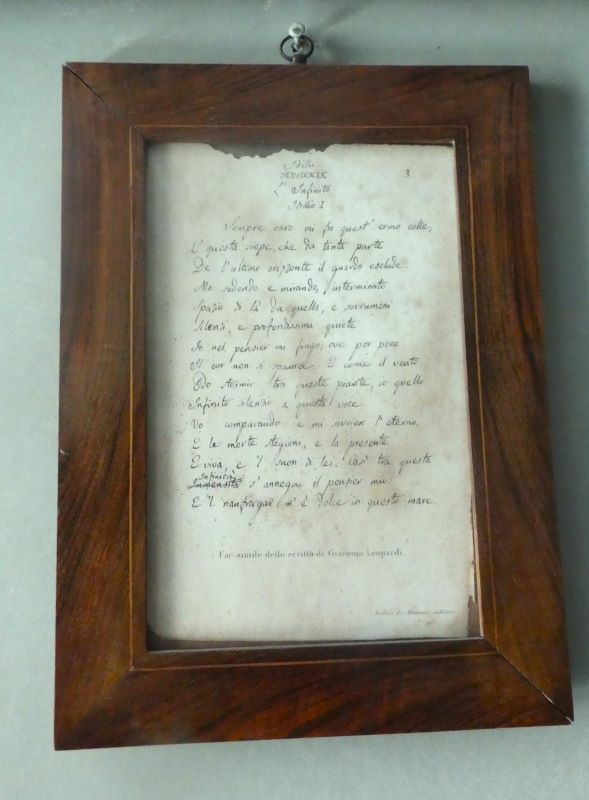 Idilli
MDCCCXIX 3
L' Infinito
Idillio I
Sempre caro mi fu quest' ermo colle,
E questa siepe, che da tanta parte
De l'ultimo orizzonte il guardo esclude.
Ma sedendo e mirando, interminato
Spazio di là da quella, e sovrumani
Silenzi, e profondissima quiete
Io nel pensier mi fingo, ove per poco
Il cor non si spaura. E come il vento
Odo stormir tra queste piante, io quello
Infinito silenzio a questa voce
Vo comparando: e mi sovvien l'eterno,
E le morte stagioni, e la presente
E viva, e 'l suon di lei. Così tra questa
Infinità
Immensità s'annega il pensier mio:
E 'l naufragar m'è dolce in questo mare.
Fac-simile dello scritto di Giacomo Leopardi
Felice Le Monnier